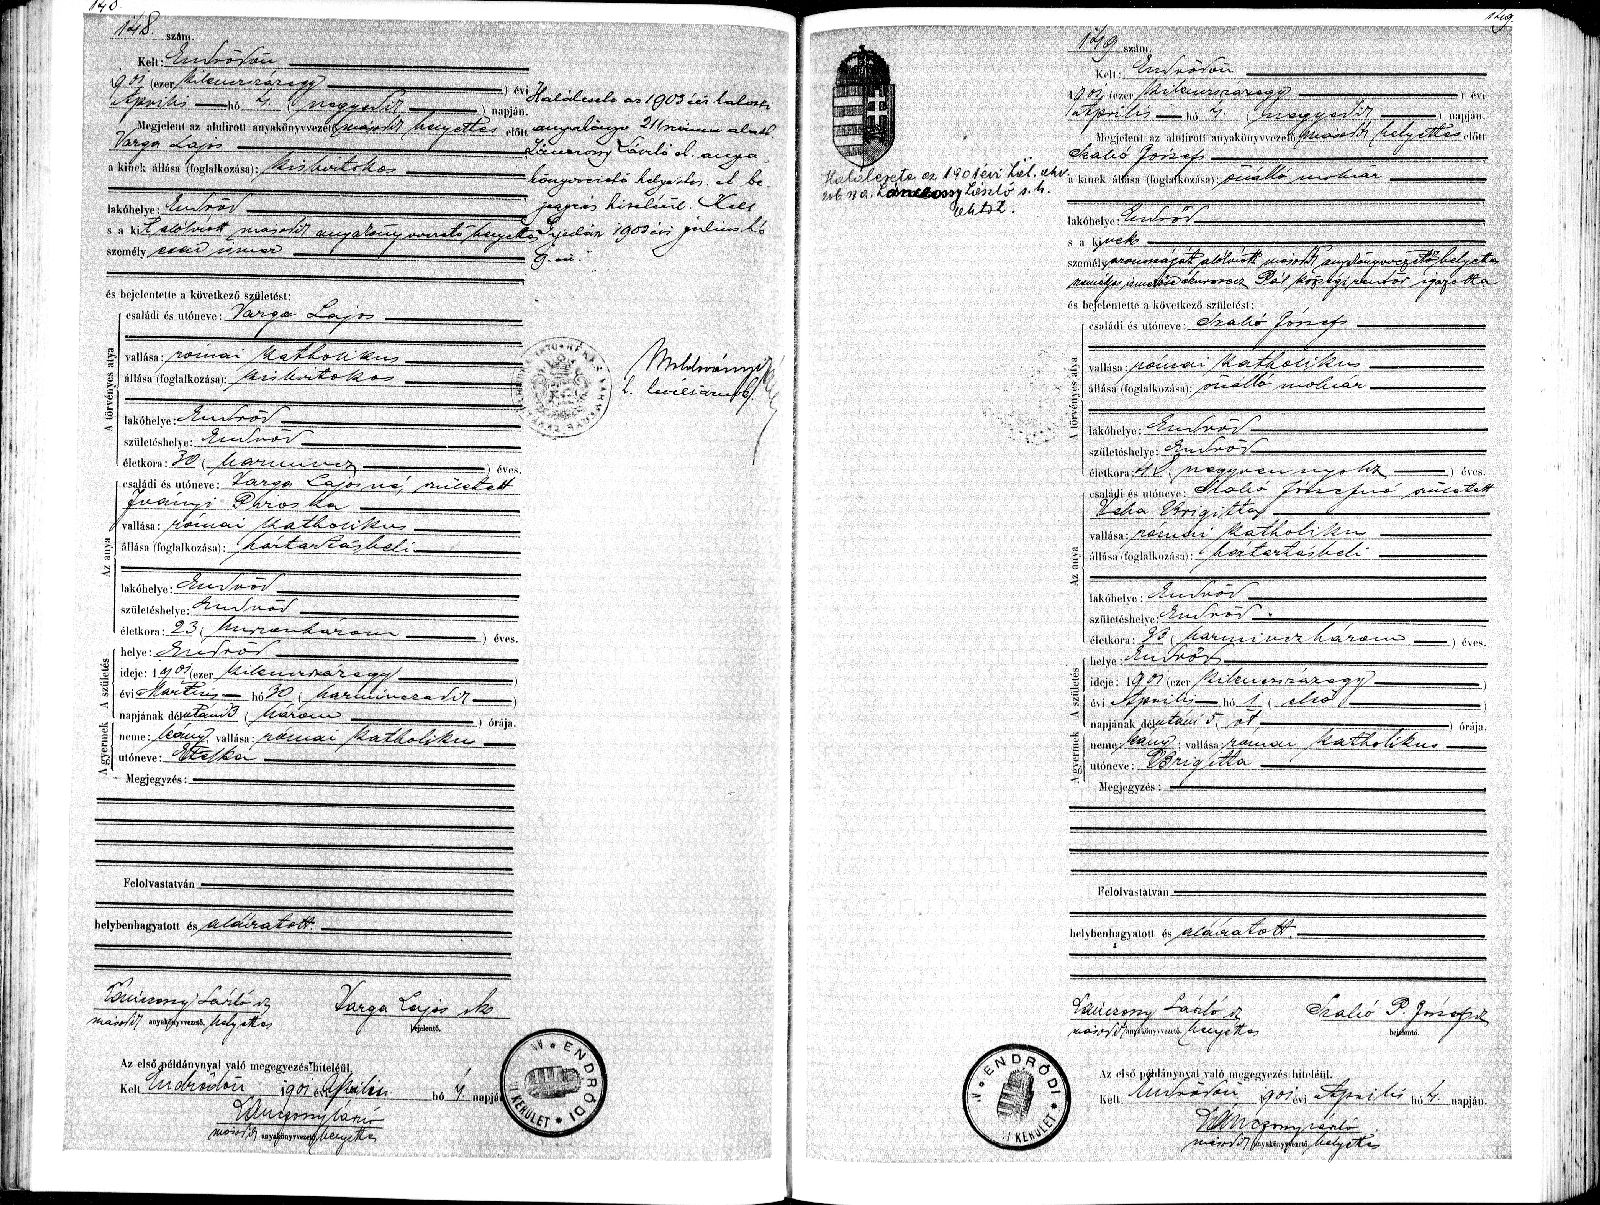 148
148. szám.
Kelt: Endrődön
1901 (ezer kilenczszázegy) évi
Április hó 4 (negyedik) napján.
Megjelent az alulirott anyakönyvvezető második helyettes előtt
Varga Lajos
a kinek állása (foglalkozása): kisbirtokos
lakóhelye: Endrőd
s a kit alólirott második anyakönyvvezető helyettes
személyesen ismer
és bejelentette a következő születést:
A törvényes atya
családi és utóneve: Varga Lajos
vallása: római katholikus
állása (foglalkozása): kisbirtokos
lakóhelye: Endrőd
születéshelye: Endrőd
életkora: 30 (harmincz) éves.
Az anya
családi és utóneve: Varga Lajosné, született
Iványi Piroska
vallása: római katholikus
állása (foglalkozása): háztartásbeli
lakóhelye: Endrőd
születéshelye: Endrőd
életkora: 23 (huszonhárom) éves.
A születés
helye: Endrőd
ideje: 1901 (ezer kilenczszázegy)
évi Martius hó 30 (harminczadik)
napjának délután 3 (három) órája.
A gyermek
neme: leány vallása: római katholikus
utóneve: Etelka
Megjegyzés:
Felolvastatván
helybenhagyatott és aláiratott.
Lánczony László sk
második anyakönyvvezető helyettes
Varga Lajos sk
bejelentő.
Az első példánynyal való megegyezés hiteléül.
Kelt Endrődön 1901 évi Április hó 4. napján
Lánczony László
második anyakönyvvezető helyettes
ENDRŐDI KERÜLET
Halálesete az 1903 évi halotti
anyakönyv 211 szám alatt
Lánczony László s. anya
könyvvezető helyettes al be
jegyzés hiteléül. Kelt
Gyulán 1903 évi július hó
9-én
149
149 szám.
Kelt: Endrődön
1901 (ezer kilenczszázegy) évi
Április hó 4. (negyedik) napján.
Megjelent az alulirott anyakönyvvezető második helyettes előtt
Szabó József
a kinek állása (foglalkozása): önálló molnár
lakóhelye: Endrőd
s a kinek
személyazonosságát alólirott második anyakönyvvezető helyettes
személyes ismerőse Pál községi rendőr igazolta
és bejelentette a következő születést:
A törvényes atya
családi és utóneve: Szabó József
vallása: római katholikus
állása (foglalkozása): önálló molnár
lakóhelye: Endrőd
születéshelye: Endrőd
életkora: 48. (negyvennyolcz) éves.
Az anya
családi és utóneve: Szabó Józsefné született
Véha Brigitta
vallása: római katholikus
állása (foglalkozása): háztartásbeli
lakóhelye: Endrőd
születéshelye: Endrőd
életkora: 33 (harminczhárom) éves.
A születés
helye: Endrőd
ideje: 1901 (ezer kilenczszázegy)
évi Április hó 1 (első)
napjának délután 5. öt órája.
A gyermek
neme leány; vallása: római katholikus
utóneve: Brigitta
Megjegyzés:
Felolvastatván
helybenhagyatott és aláiratott.
Lánczony László sk
második anyakönyvvezető helyettes
Szabó P. József sk
bejelentő.
Az első példánynyal való megegyezés hiteléül.
Kelt Endrődön 1901 évi Április hó 4. napján.
Lánczony László
második anyakönyvvezető helyettes
ENDRŐDI KERÜLET
Halálesete az 1901 évi hal. akv.
Lánczony László s. k.